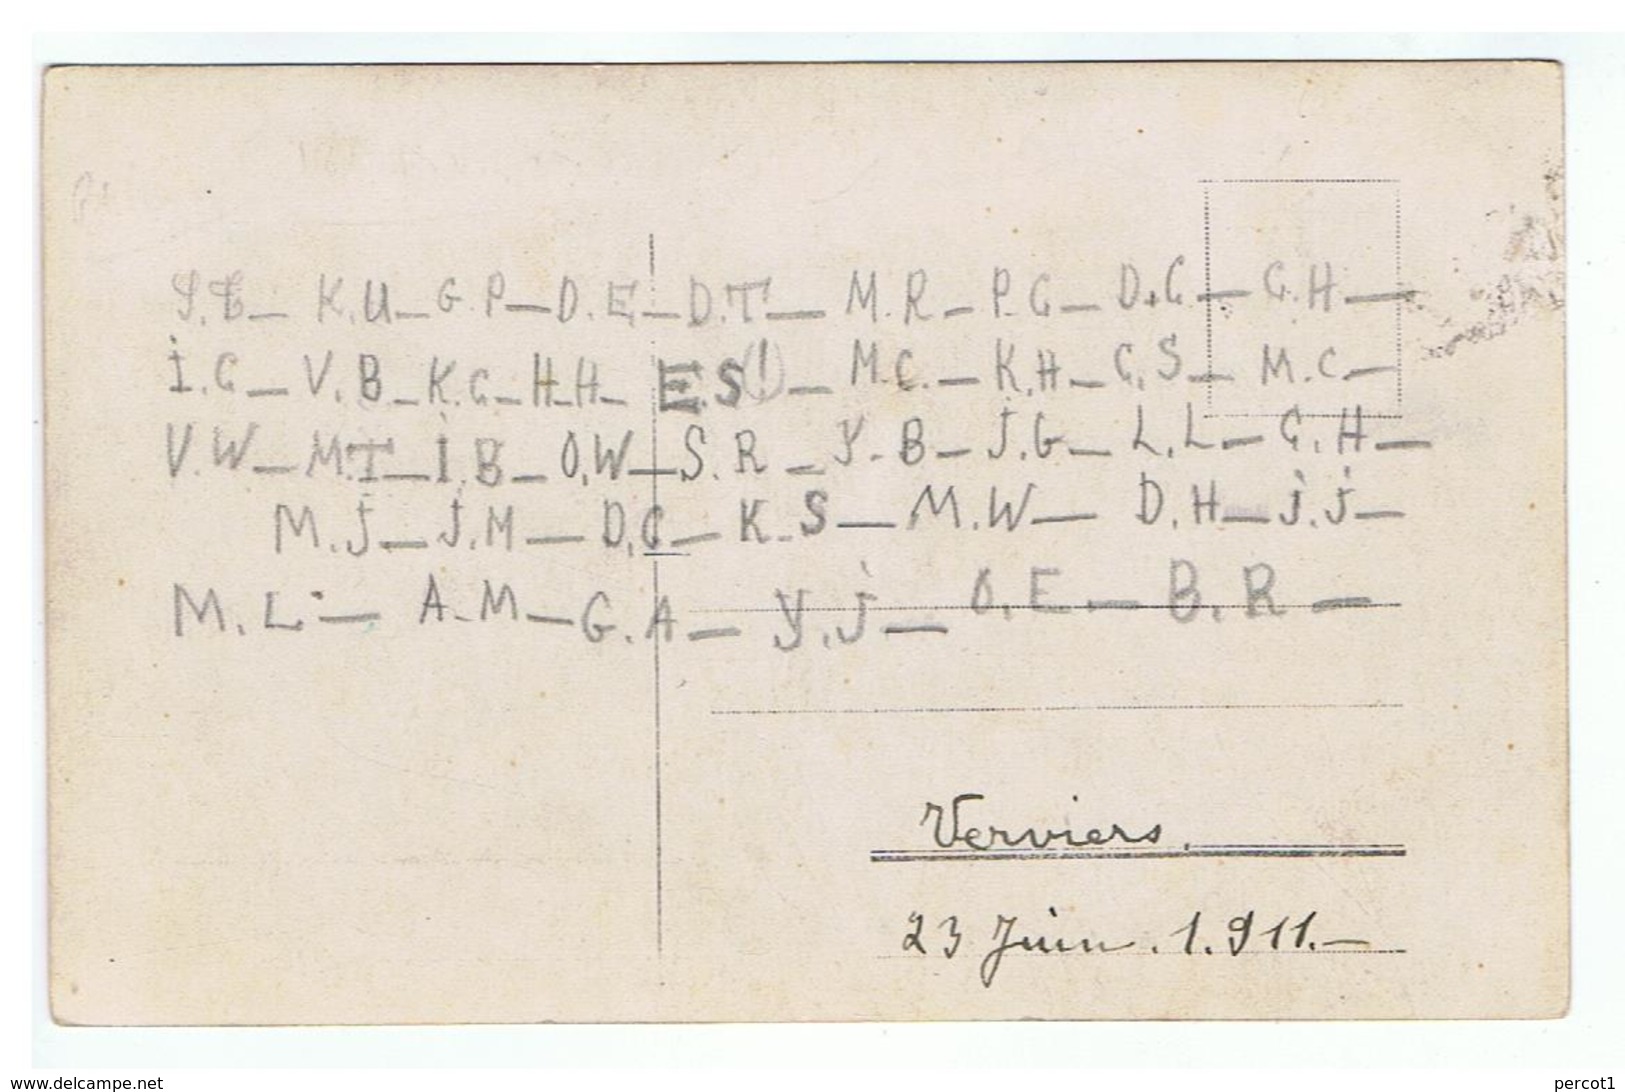 K.U_ G.P_D.E_D.T_ M.R_ P.G_ D.C_ C.H_
I.C_ V.B_K.G_H.H_ E.S!_ M.C._ K.H_ C.S_ M.C_
V.W_ M.T_I.B_O.W_S.R_ Y.B_ J.G_ L.L_ C.H_
M.J_ J.M_ D.C_ K.S_ M.W_ D.H_ J.J_
M.L_ A.M_G.A_ Y.J_ O.E_ B.R_
Verviers.
23 Juin. 1.911.—
www.delcampe.net
percot1